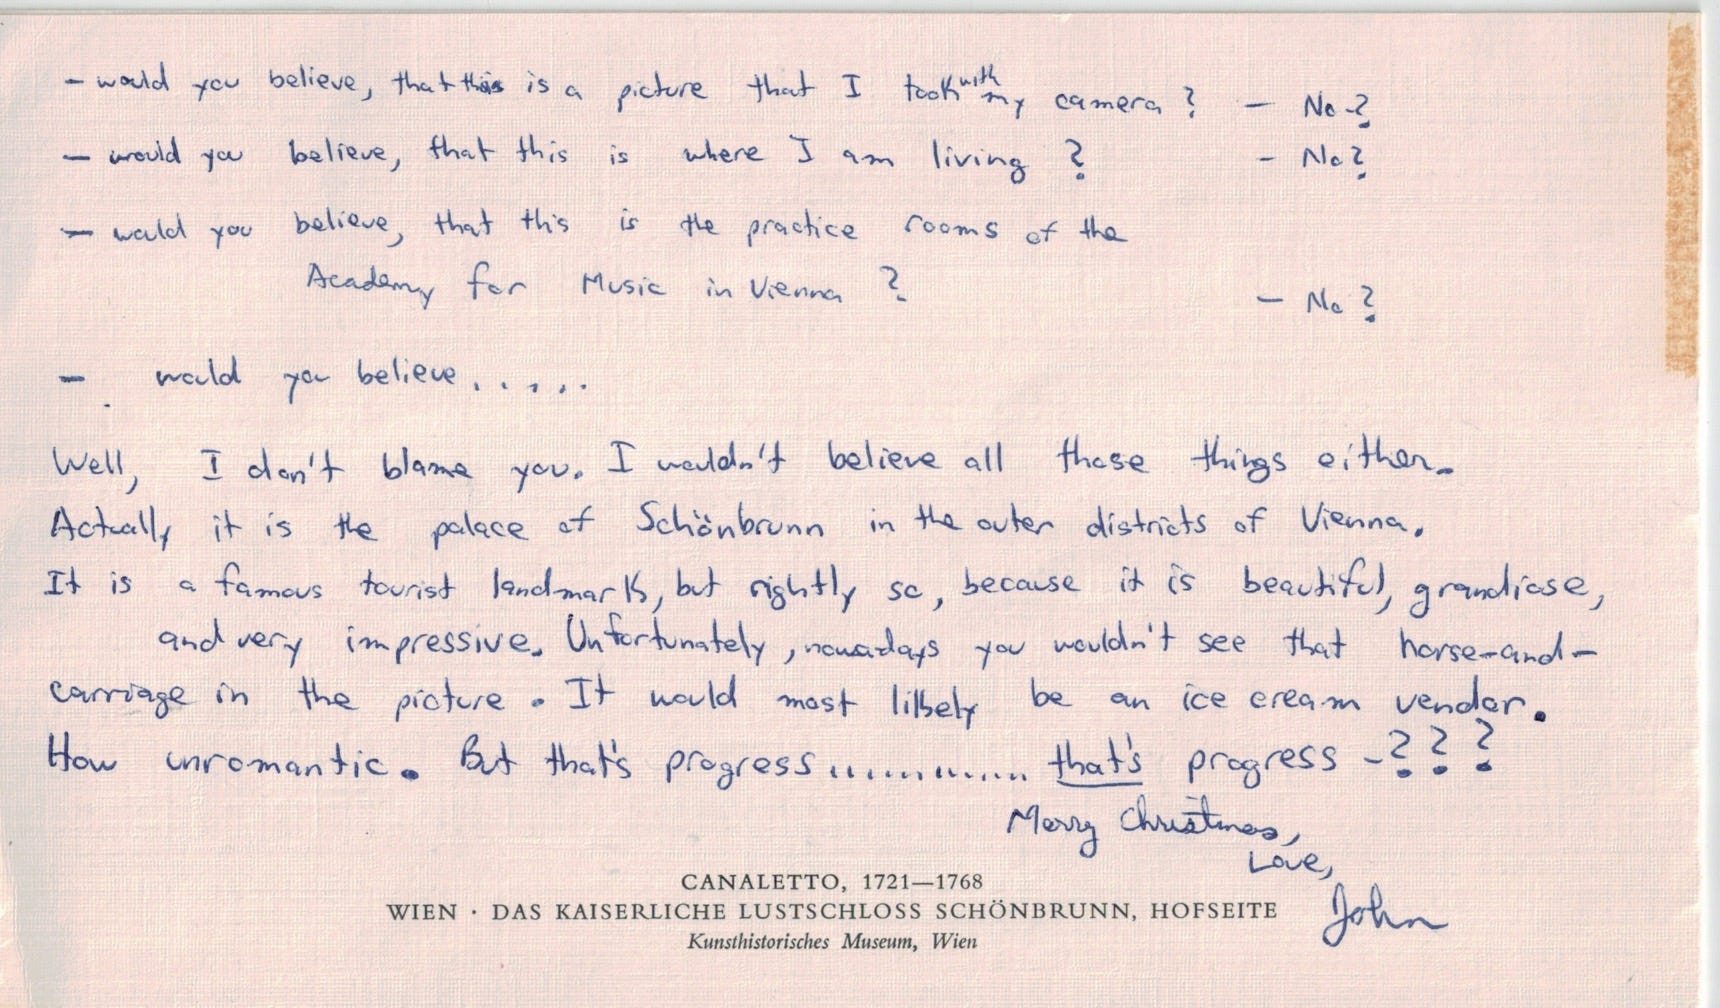 - would you believe, that this is a picture that I took with my camera? - No?
- would you believe, that this is where I am living? - No?
- would you believe, that this is the practice rooms of the
Academy for Music in Vienna? - No?
- would you believe.....
Well, I don't blame you. I wouldn't believe all those things either.
Actually it is the palace of Schönbrunn in the outer districts of Vienna.
It is a famous tourist landmark, but rightly so, because it is beautiful, grandiose,
and very impressive. Unfortunately, nowadays you wouldn't see that horse-and-
carriage in the picture. It would most likely be an ice cream vendor.
How unromantic. But that's progress............. that's progress -???
Merry Christmas,
Love,
John
CANALETTO, 1721—1768
WIEN · DAS KAISERLICHE LUSTSCHLOSS SCHÖNBRUNN, HOFSEITE
Kunsthistorisches Museum, Wien